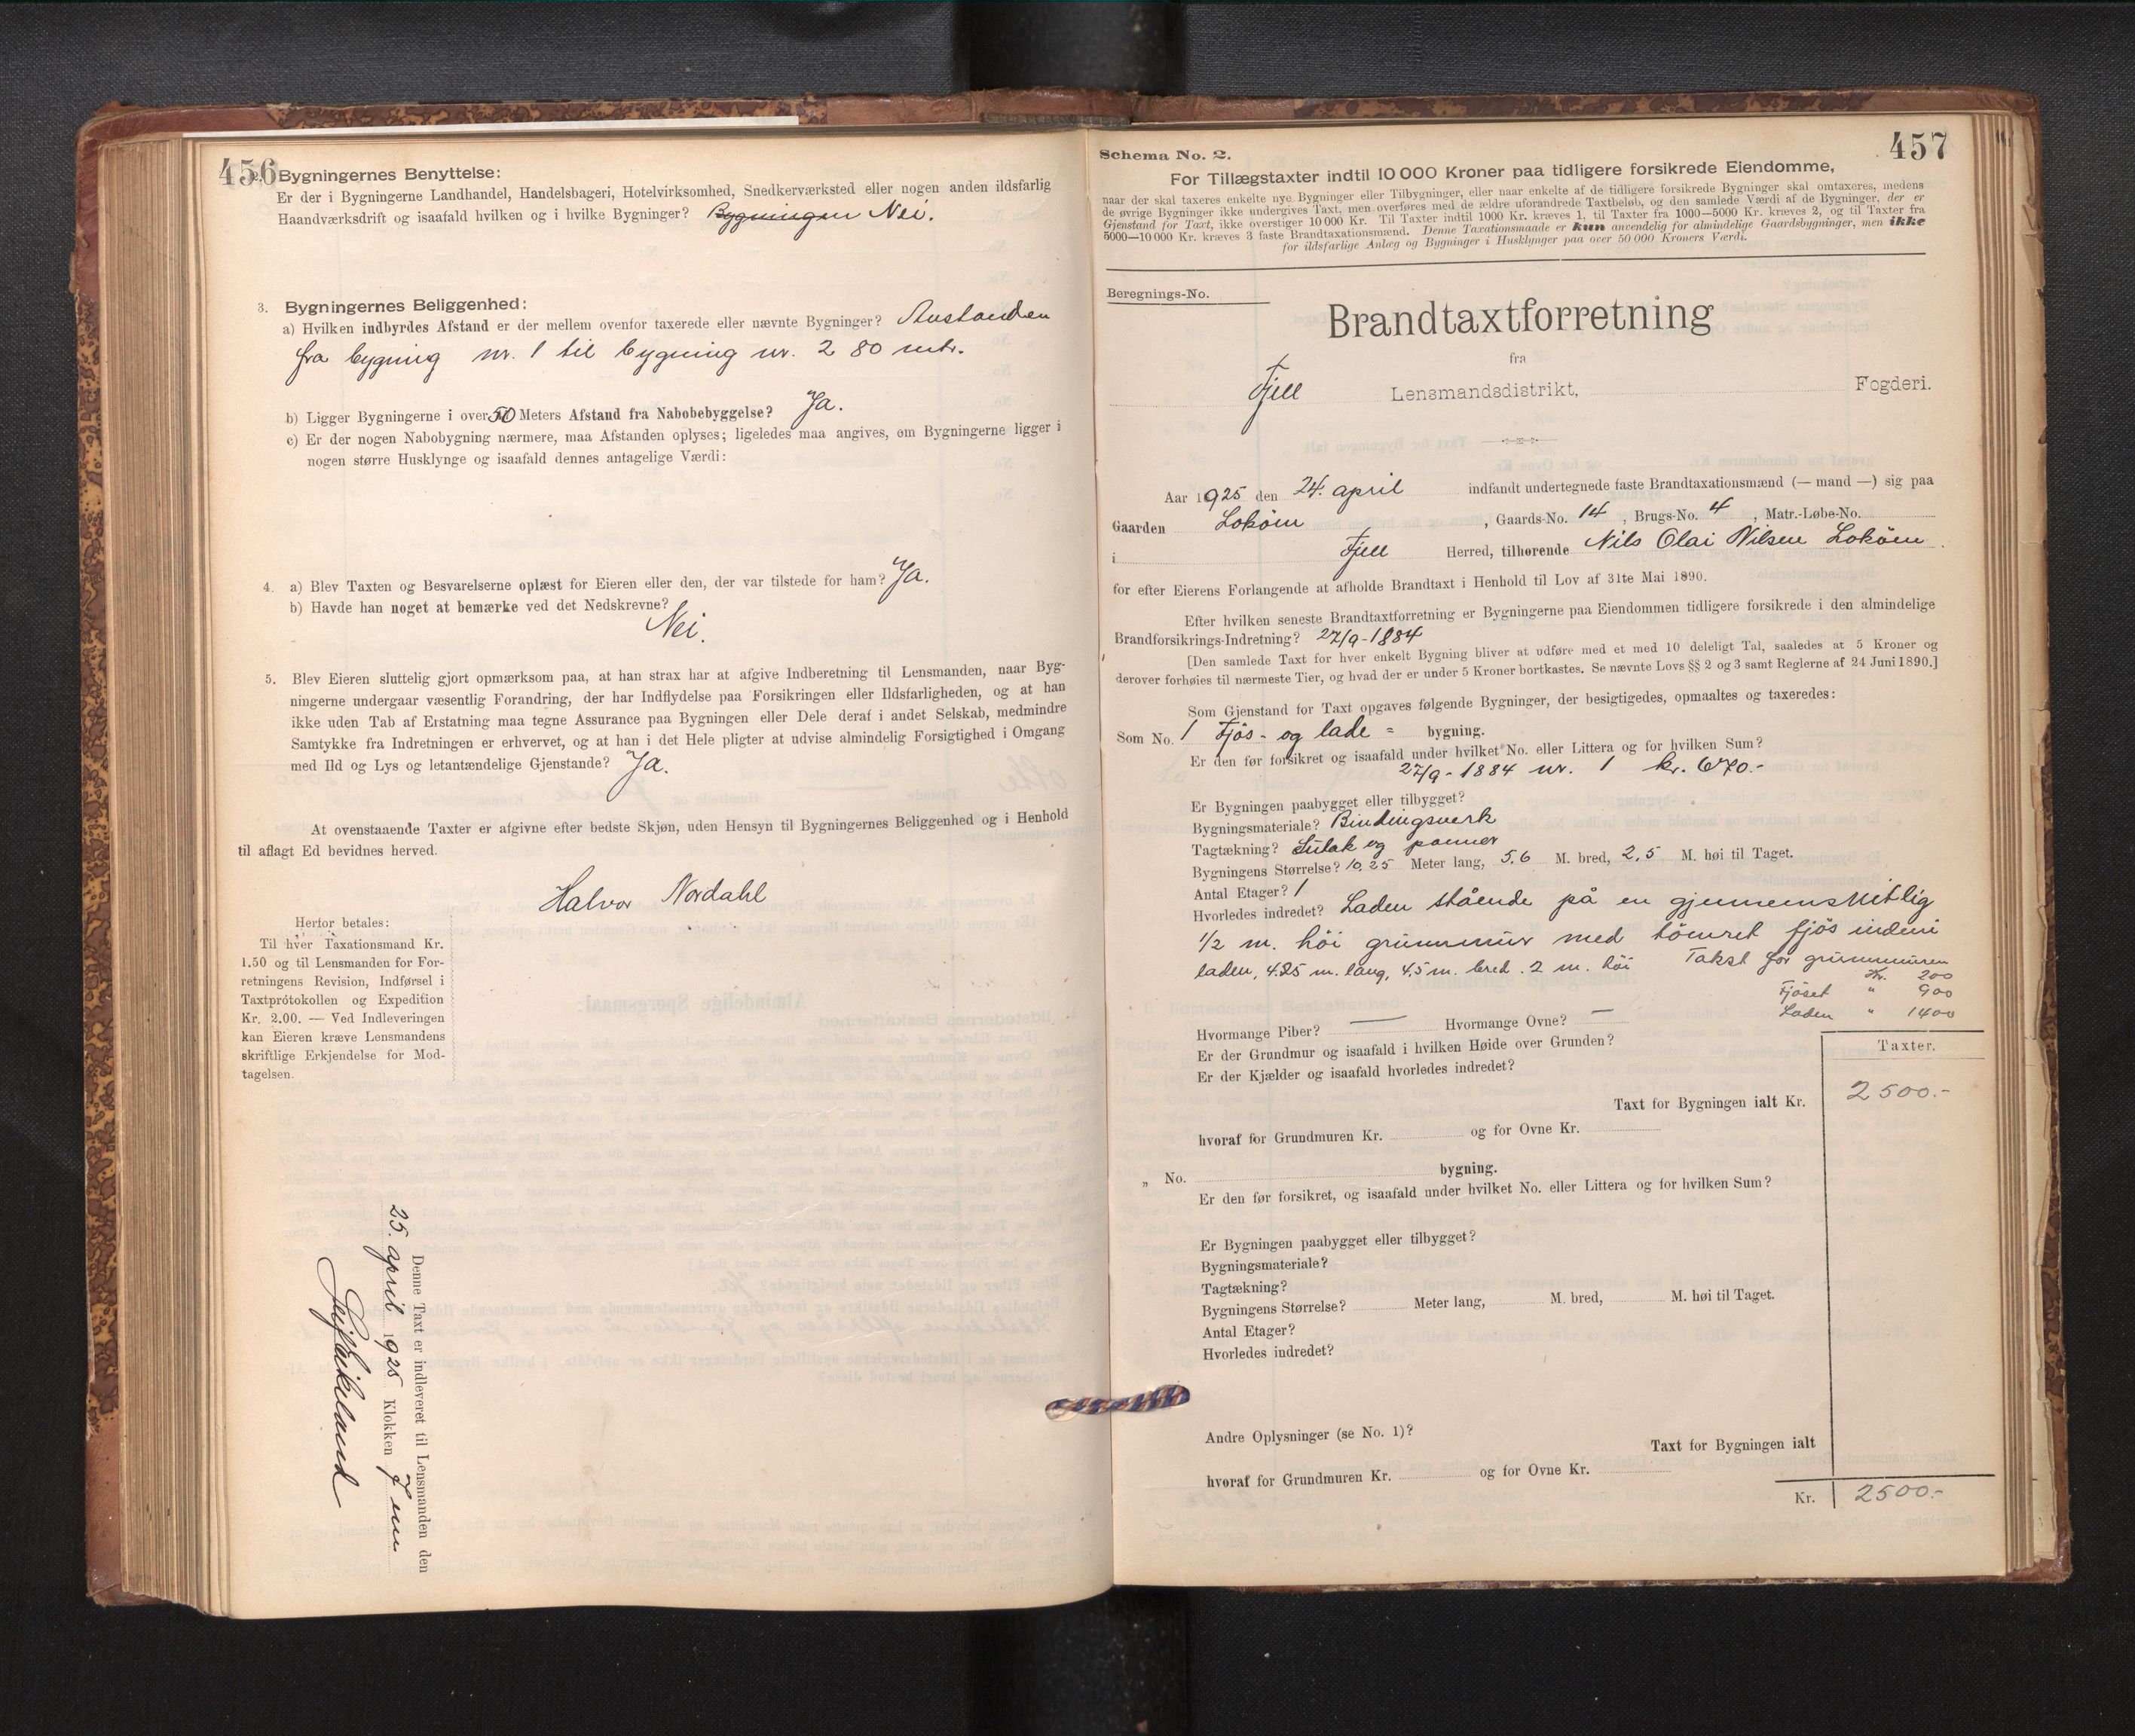 456
2. Bygningernes Benyttelse:
Er der i Bygningerne Landhandel, Handelsbageri, Hotelvirksomhed, Snedkerværksted eller nogen anden ildsfarlig
Haandværksdrift og isaafald hvilken og i hvilke Bygninger? Bygningen Nei.
3. Bygningernes Beliggenhed:
a) Hvilken indbyrdes Afstand er der mellem ovenfor taxerede eller nævnte Bygninger? Avstanden
fra bygning nr. 1 til bygning nr. 2 80 mtr.
b) Ligger Bygningerne i over 50 Meters Afstand fra Nabobebyggelse? Ja.
c) Er der nogen Nabobygning nærmere, maa Afstanden oplyses; ligeledes maa angives, om Bygningerne ligger i
nogen større Husklynge og isaafald dennes antagelige Værdi:
4. a) Blev Taxten og Besvarelserne oplæst for Eieren eller den, der var tilstede for ham? Ja.
b) Havde han noget at bemærke ved det Nedskrevne?
Nei.
5. Blev Eieren sluttelig gjort opmærksom paa, at han strax har at afgive Indberetning til Lensmanden, naar Byg-
ningerne undergaar væsentlig Forandring, der har Indflydelse paa Forsikringen eller Ildsfarligheden, og at han
ikke uden Tab af Erstatning maa tegne Assurance paa Bygningen eller Dele deraf i andet Selskab, medmindre
Samtykke fra Indretningen er erhvervet, og at han i det Hele pligter at udvise almindelig Forsigtighed i Omgang
med Ild og Lys og letantændelige Gjenstande? Ja.
At ovenstaaende Taxter er afgivne efter bedste Skjøn, uden Hensyn til Bygningernes Beliggenhed og i Henhold
til aflagt Ed bevidnes herved.
Halvor Nordahl
Herfor betales:
Til hver Taxationsmand Kr.
1,50 og til Lensmanden for For-
retningens Revision, Indførsel i
Taxtprotokollen og Expedition
Kr. 2,00. — Ved Indleveringen
kan Eieren kræve Lensmandens
skriftlige Erkjendelse for Mod-
tagelsen.
Denne Taxt er indleveret til Lensmanden den
25. april 1925 Klokken 7 em
457
Schema No. 2.
For Tillægstaxter indtil 10 000 Kroner paa tidligere forsikrede Eiendomme,
naar der skal taxeres enkelte nye Bygninger eller Tilbygninger, eller naar enkelte af de tidligere forsikrede Bygninger skal omtaxeres, medens
de øvrige Bygninger ikke undergives Taxt, men overføres med de ældre uforandrede Taxtbeløb, og den samlede Værdi af de Bygninger, der er
Gjenstand for Taxt, ikke overstiger 10 000 Kr. Til Taxter indtil 1000 Kr. kræves 1, til Taxter fra 1000—5000 Kr. kræves 2, og til Taxter fra
5000—10 000 Kr. kræves 3 faste Brandtaxationsmænd. Denne Taxationsmaade er kun anvendelig for almindelige Gaardsbygninger, men ikke
for ildsfarlige Anlæg og Bygninger i Husklynger paa over 50 000 Kroners Værdi.
Beregnings-No.
Brandtaxtforretning
fra
Fjell Lensmandsdistrikt, Fogderi.
Aar 1925 den 24. april indfandt undertegnede faste Brandtaxationsmænd (— mand —) sig paa
Gaarden Lokøen, Gaards-No. 14, Brugs-No. 4, Matr.-Løbe-No.
i Fjell Herred, tilhørende Nils Olai Nilsen Lokøen.
for efter Eierens Forlangende at afholde Brandtaxt i Henhold til Lov af 31te Mai 1890.
Efter hvilken seneste Brandtaxtforretning er Bygningerne paa Eiendommen tidligere forsikrede i den almindelige
Brandforsikrings-Indretning? 27/9-1884
[Den samlede Taxt for hver enkelt Bygning bliver at udføre med et med 10 deleligt Tal, saaledes at 5 Kroner og
derover forhøies til nærmeste Tier, og hvad der er under 5 Kroner bortkastes. Se nævnte Lovs §§ 2 og 3 samt Reglerne af 24 Juni 1890.]
Som Gjenstand for Taxt opgaves følgende Bygninger, der besigtigedes, opmaaltes og taxeredes:
Som No. 1 Fjøs- og lade= bygning.
Er den før forsikret og isaafald under hvilket No. eller Littera og for hvilken Sum?
27/9-1884 nr. 1 kr. 670.-
Er Bygningen paabygget eller tilbygget?
Bygningsmateriale? Bindingsverk
Tagtækning? Sutak og panner
Bygningens Størrelse? 10,25 Meter lang, 5,6 M. bred, 2,5 M. høi til Taget.
Antal Etager? 1
Hvorledes indredet? Laden stående på en gjennemsnitlig
1/2 m. høi grunnmur med tømret fjøs inderi
laden, 4.25 m. lang, 4,5 m. bred. 2 m. høi Takst for grunnmuren
Kr. 200
Fjøset " 900
Laden " 1400
Hvormange Piber? — Hvormange Ovne? —
Er der Grundmur og isaafald i hvilken Høide over Grunden?
Er der Kjælder og isaafald hvorledes indredet?
Taxter.
Taxt for Bygningen ialt Kr. 2500.-
hvoraf for Grundmuren Kr. og for Ovne Kr.
„ No. bygning.
Er den før forsikret, og isaafald under hvilket No. eller Littera og for hvilken Sum?
Er Bygningen paabygget eller tilbygget?
Bygningsmateriale?
Tagtækning?
Bygningens Størrelse? Meter lang, M. bred, M. høi til Taget.
Antal Etager?
Hvorledes indredet?
Andre Oplysninger (se No. 1)?
Taxt for Bygningen ialt
hvoraf for Grundmuren Kr. og for Ovne Kr.
Kr. 2500.-